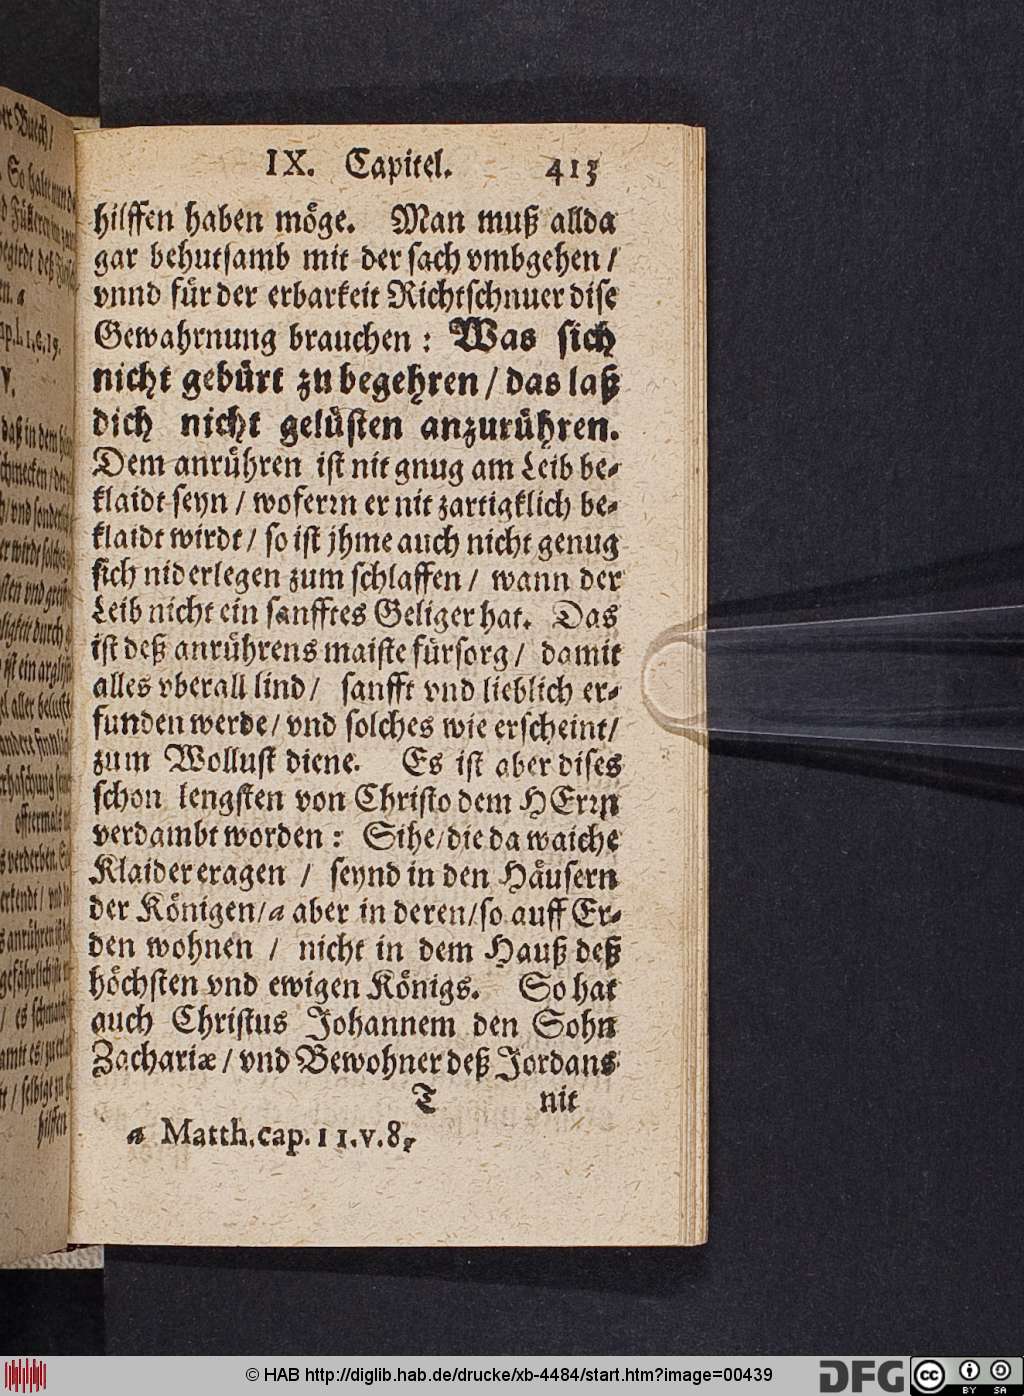 IX. Capitel. 413
hilffen haben möge. Man muß allda
gar behutsamb mit der sach vmbgehen /
vnnd für der erbarkeit Richtschnuer dise
Gewahrnung brauchen : Was sich
nicht gebürt zu begehren / das laß
dich nicht gelüsten anzurühren.
Dem anrühren ist nit gnug am Leib be-
klaidt seyn / woferrn er nit zartigklich be-
klaidt wirdt / so ist jhme auch nicht genug
sich niderlegen zum schlaffen / wann der
Leib nicht ein sanfftes Geliger hat. Das
ist deß anrührens maiste fürsorg / damit
alles vberall lind / sanfft vnd lieblich er-
funden werde / vnd solches wie erscheint /
zum Wollust diene. Es ist aber dises
schon lengsten von Christo dem HErrn
verdambt worden : Sihe / die da waiche
Klaider eragen / seynd in den Häusern
der Königen / a aber in deren / so auff Er-
den wohnen / nicht in dem Hauß deß
höchsten vnd ewigen Königs. So hat
auch Christus Johannem den Sohn
Zachariæ / vnd Bewohner deß Jordans
T nit
a Matth. cap. 11. v. 8.
© HAB http://diglib.hab.de/drucke/xb-4484/start.htm?image=00439
DFG
cc BY SA